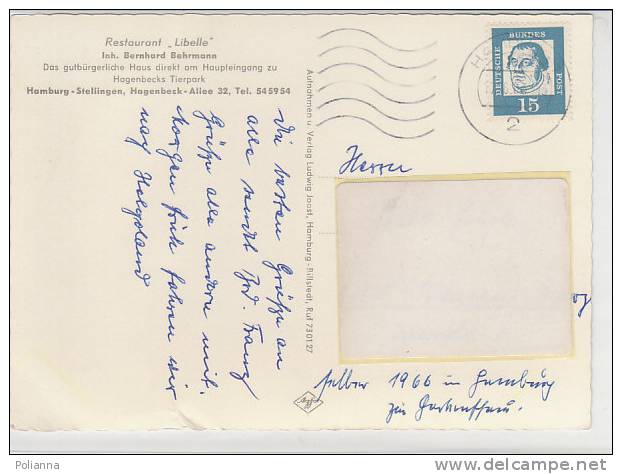 Restaurant „Libelle"
Inh. Bernhard Behrmann
Das gutbürgerliche Haus direkt am Haupteingang zu
Hagenbecks Tierpark
Hamburg-Stellingen, Hagenbeck-Allee 32, Tel. 545954
DEUTSCHE
BUNDES
POST
15
2
Die besten Grüße an
alle sendet Frd. Franz
Grüße alle andern mit.
Morgen früh fahren wir
nach Helgoland
Aufnahmen u. Verlag Ludwig Joost, Hamburg-Billstedt, Ruf 730127
Herrn
selber 1966 in Hamburg
zur
Agfa
Polianna
delcampe.net